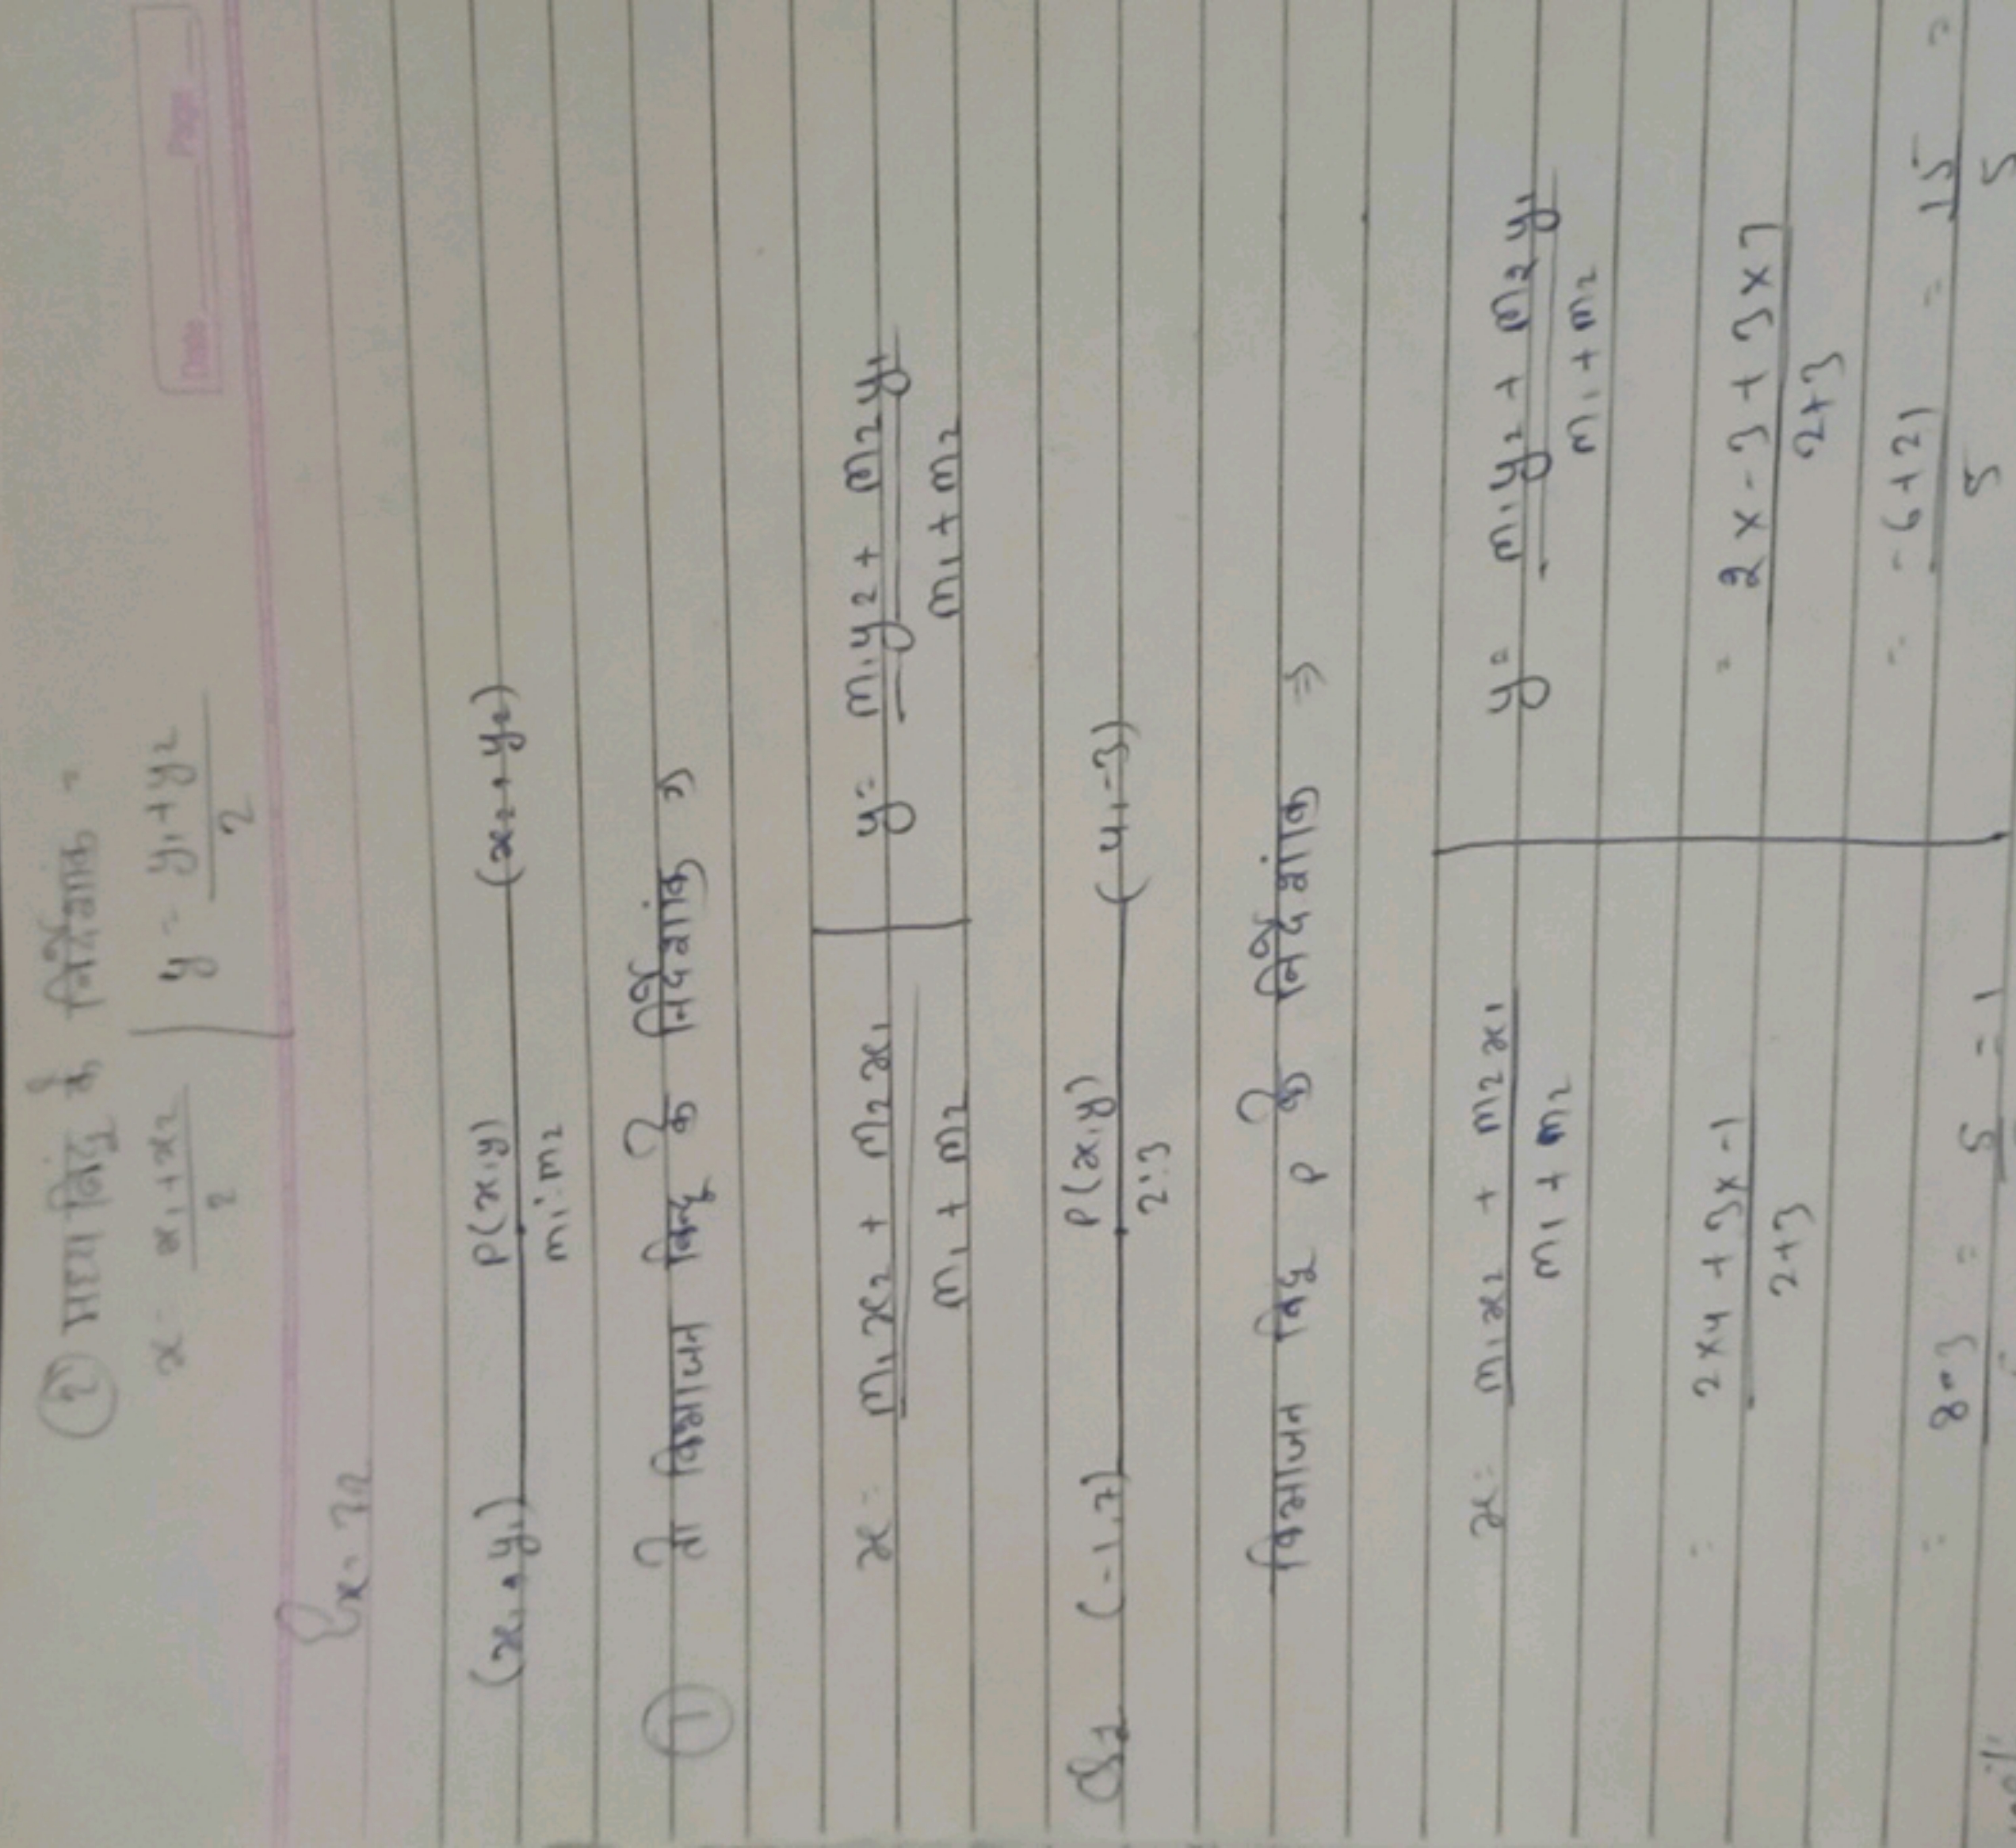 ② मध्य बिंदु के निर्देशांक =
x = x₁+x₂/2 | y = y₁+y₂/2
Date Page
Ex - 7.2
(x₁, y₁) P(x,y) (x₂, y₂)
m₁:m₂
① तो विभाजन बिन्दु के निर्देशांक ⇒
x = m₁x₂ + m₂x₁ / m₁ + m₂ | y = m₁y₂ + m₂y₁ / m₁ + m₂
Q1 (-1,7) P(x,y) (4,-3)
2:3
विभाजन बिंदु P के निर्देशांक ⇒
x = m₁x₂ + m₂x₁ / m₁ + m₂ | y = m₁y₂ + m₂y₁ / m₁ + m₂
= 2x4 + 3x-1 / 2+3 | = 2x-3+3x7 / 2+3
= 8-3 / 5 = 5 / = 1 | = -6+21 / 5 = 15 / 5 =